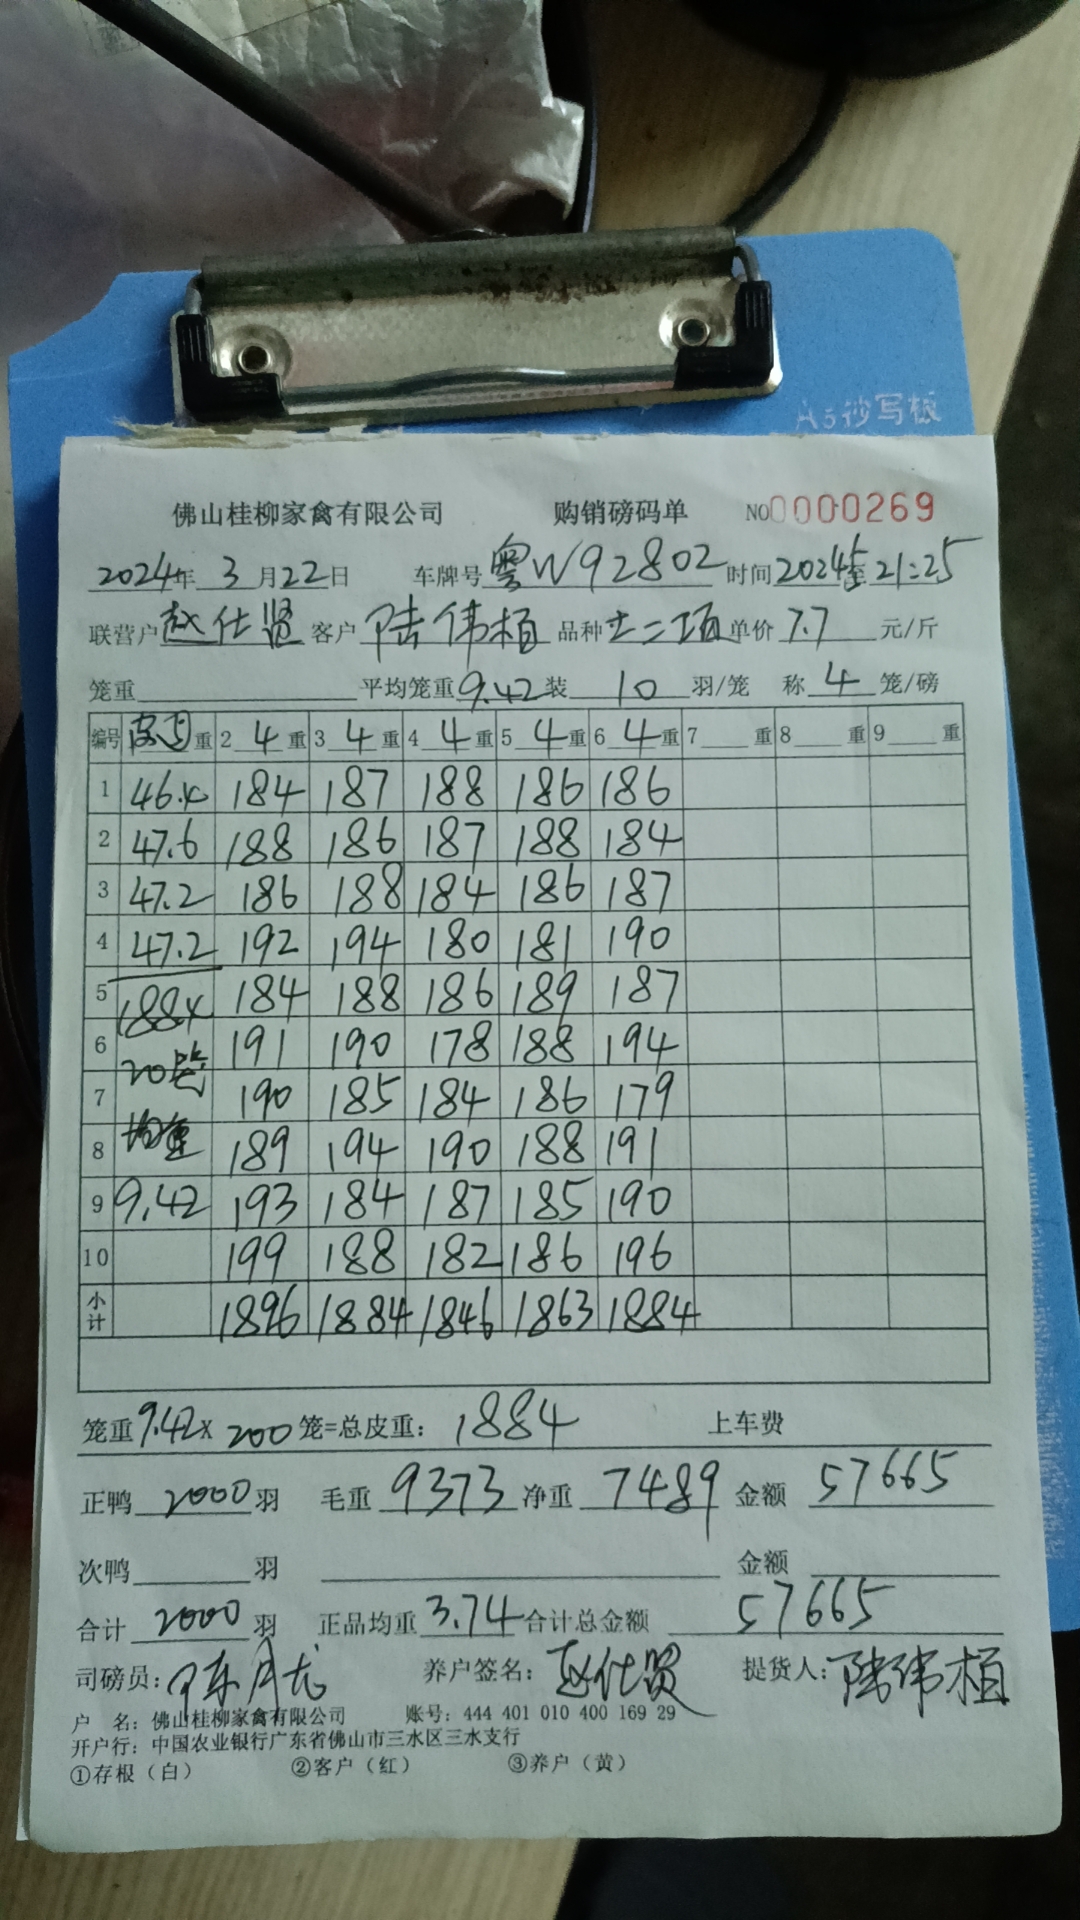 A5抄写板
佛山桂柳家禽有限公司 购销磅码单 NO0000269
2024年 3 月22日 车牌号 粤W92802 时间 21:25
联营户 赵仕贤 客户 陆伟栢 品种 单价 7.7 元/斤
笼重 平均笼重 9.42 装 10 羽/笼 称 4 笼/磅
编号 重 2 4 重 3 4 重 4 4 重 5 4 重 6 4 重 7 重 8 重 9 重
1 46.4 184 187 188 186 186
2 47.6 188 186 187 188 184
3 47.2 186 188 184 186 187
4 47.2 192 194 180 181 190
5 188.4 184 188 186 189 187
6 20笼 191 190 178 188 194
7 190 185 184 186 179
8 均重 189 194 190 188 191
9 9.42 193 184 187 185 190
10 199 188 182 186 196
小计 1896 1884 1846 1863 1884
笼重 9.42 x 200 笼=总皮重： 1884 上车费
正鸭 2000 羽 毛重 9373 净重 7489 金额 57665
次鸭 羽 金额
合计 2000 羽 正品均重 3.74 合计总金额 57665
司磅员： 养户签名：赵仕贤 提货人：陆伟栢
户 名：佛山桂柳家禽有限公司 账号：444 401 010 400 169 29
开户行：中国农业银行广东省佛山市三水区三水支行
①存根（白） ②客户（红） ③养户（黄）